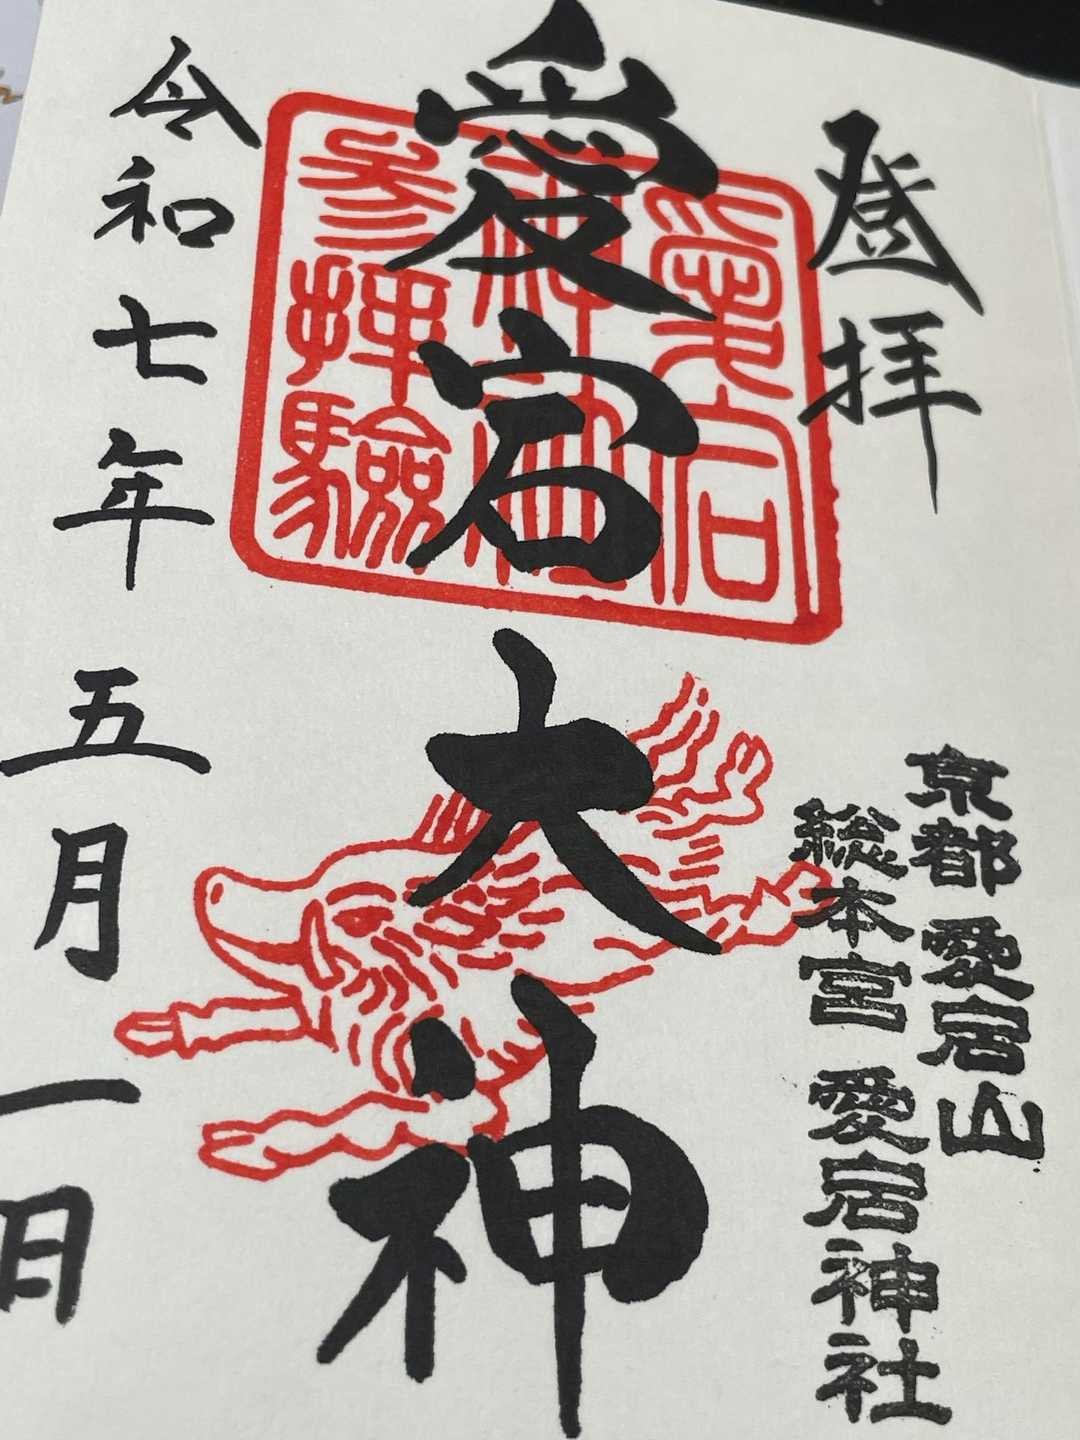 登拝
京都愛宕山
総本宮 愛宕神社
愛宕大神
愛宕
神社
参拝験
令和七年 五月 一日